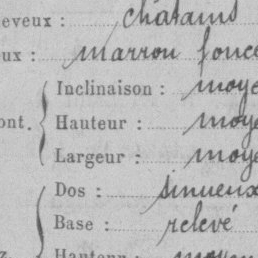 eveux : châtains
ux : marron foncé
Inclinaison : moye
ont. Hauteur : moye
Largeur : moye
Dos : sinueux
Base : relevé
z Hauteur : moyen